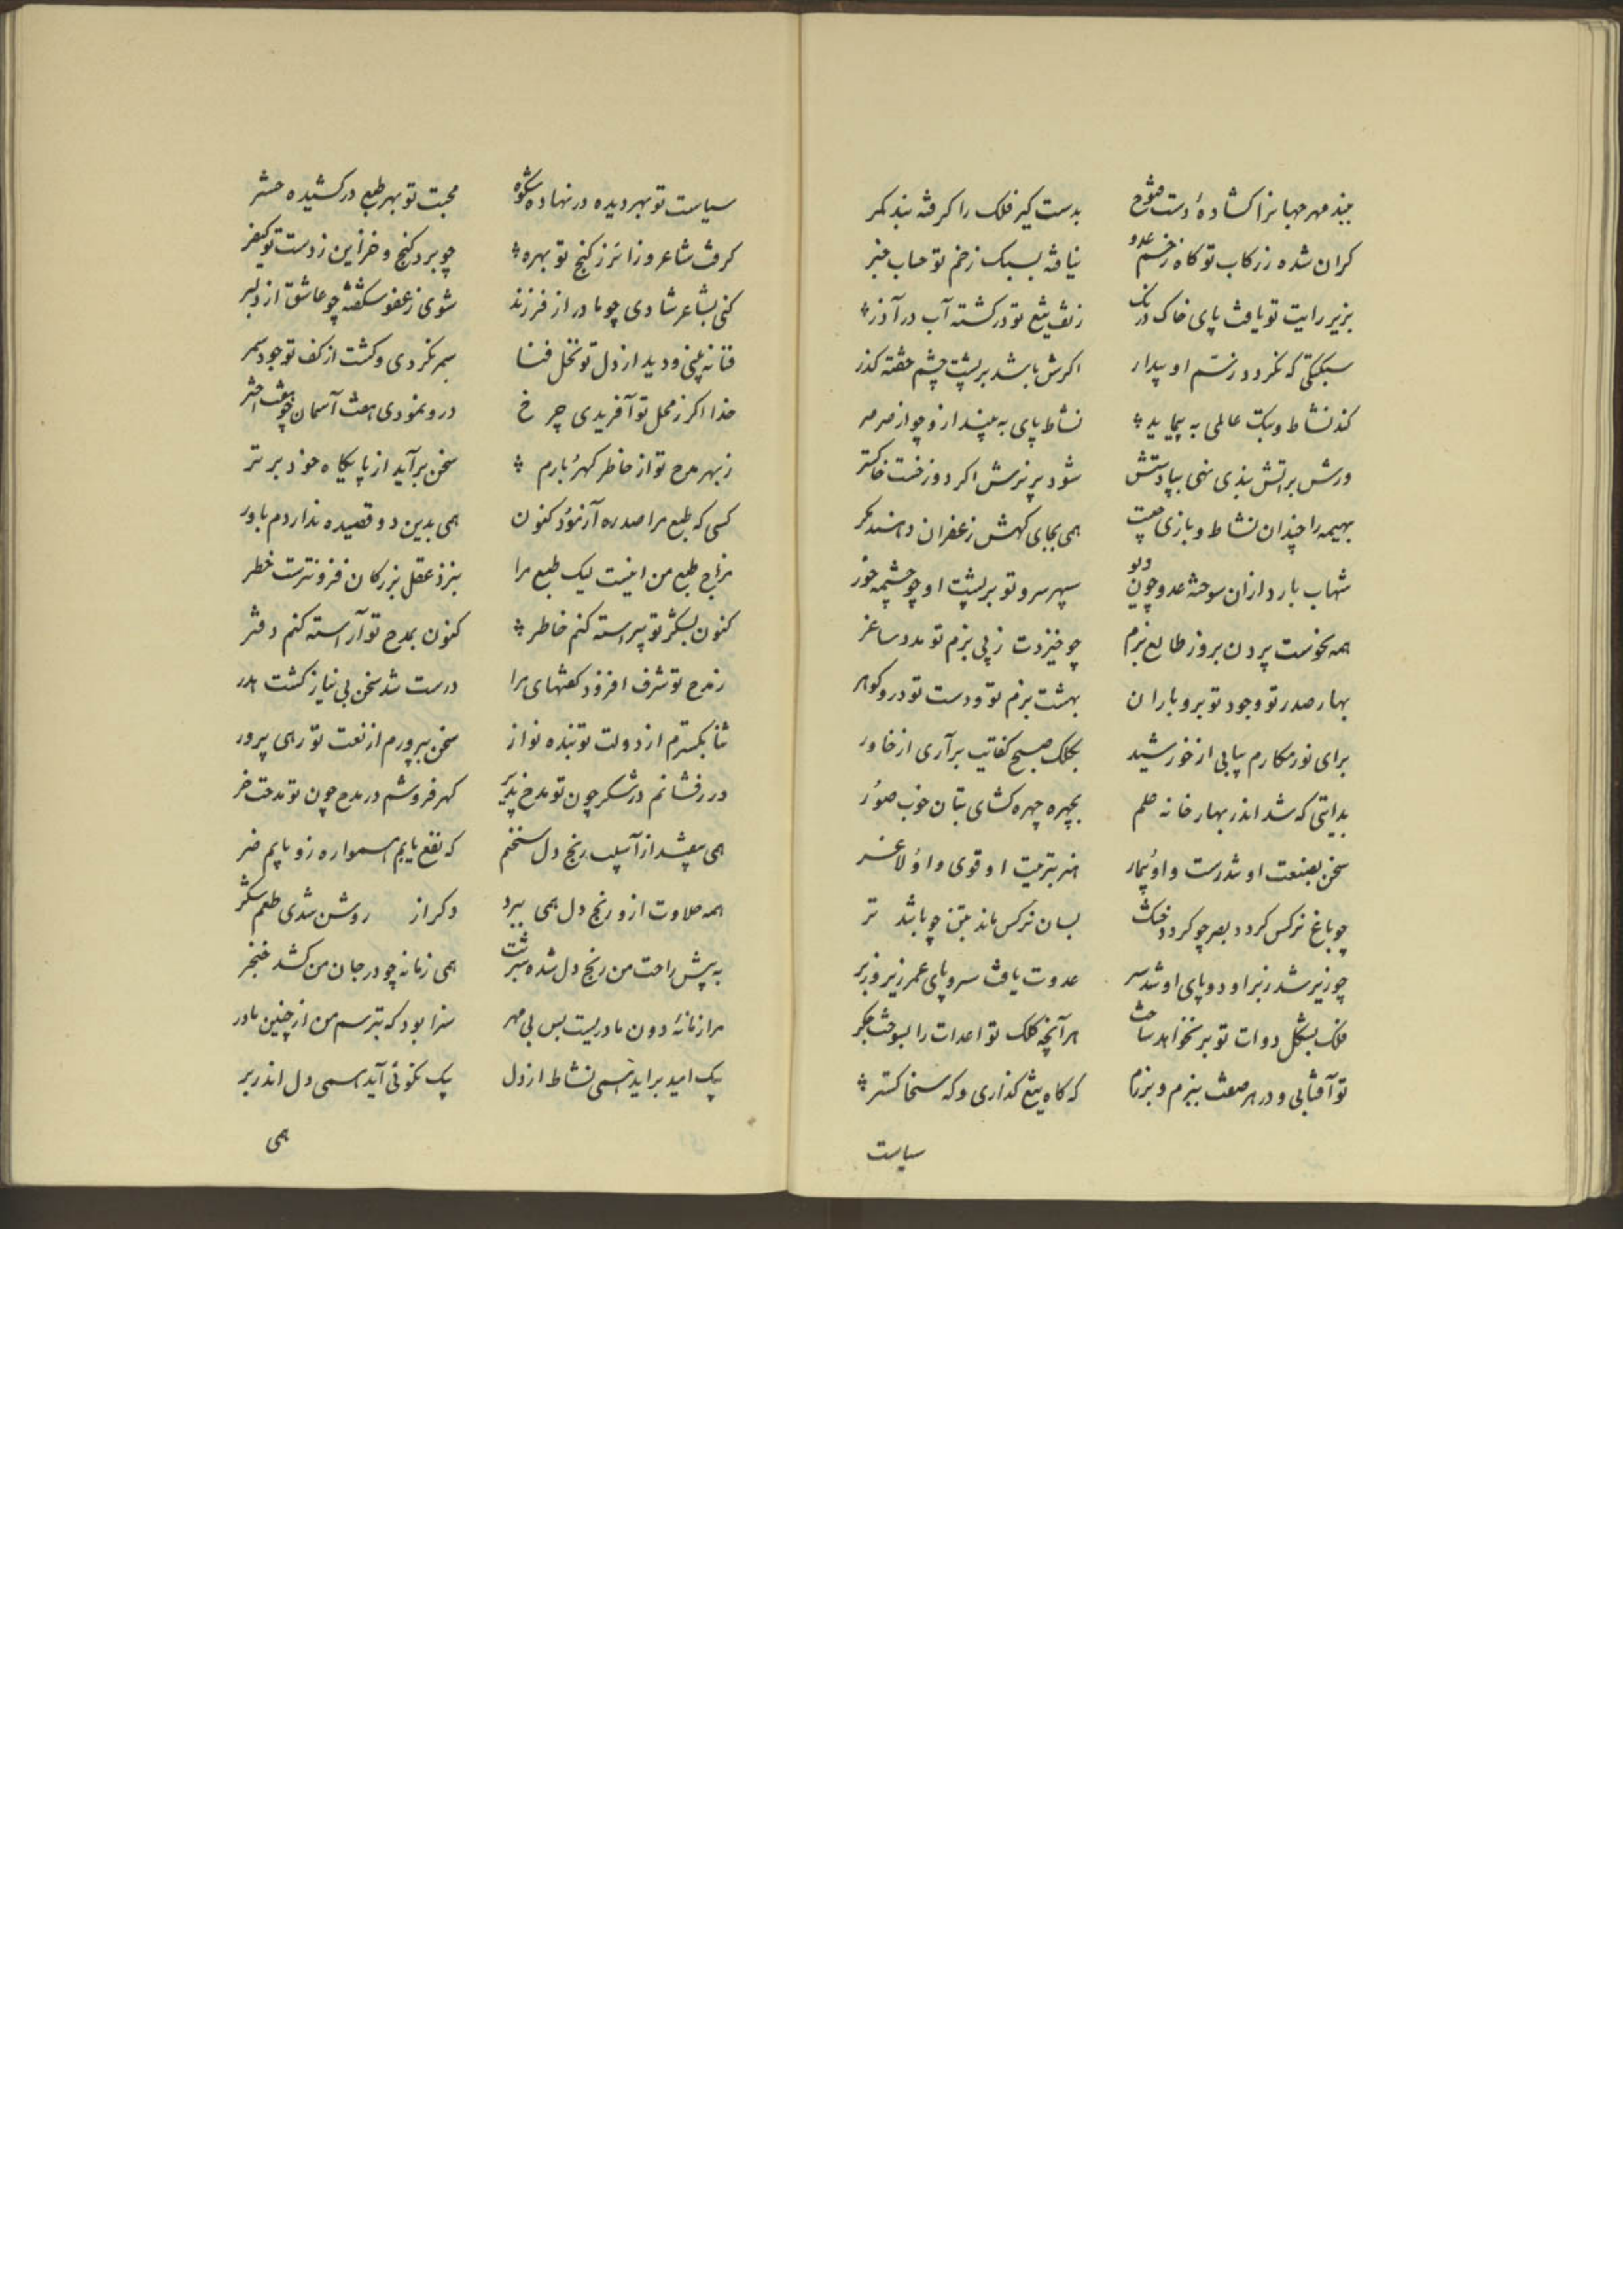 ببند مهر جهانرا کشادهٔ دست فتوح بدست کیر فلک را کرفته بند کمر
کران شده ز رکاب تو کاه زخم عدو نیافته بسبک زخم تو حساب خبر
بزیر رایت تو یافت پای خاک درنک ز تف تیغ تو در کشته آب در آذر
سبکتکی که نکردد ز سم او بیدار اکرش باشد بر پشت چشم خفته کذر
کند نشاط و بیک عالمی به پیماید نشاط پای به بیند ازو چو از صرصر
ورش بر آتش بندی نهی بپاداشش شود پر نرمش اکر دوزخست خاکستر
بهیمه را چندان نشاط و بازی چیست همی بجای کهش زعفران دهند مکر
شهاب بارد ازان سوخته عدو چون دیو سپهر سرو تو بر پشت او چو چشمه خور
همه نحوست پردن بروز طالع بزم چو خیزدت ز پی بزم تو مدد ساغر
بهار صدر تو و جود تو برو باران بهشت بزم تو و دست تو درو کوهر
برای نور مکارم بیابی از خورشید بکلک صبح کفایت برآری از خاور
بدایتی که شد اندر بهار خانه علم بچهره چهره کشای بتان خوب صور
سخن بصنعت او تندرست و او بیمار هنر بتربیت او قوی و او لاغر
چو باغ نرکس کردد بصر چو کردد خشک بسان نرکس ماند بتن چو باشد تر
چو زیر شد زبر او دو پای او شد سر عدوت یافت سر و پای عمر زیر و زبر
فلک بشکل دوات تو بر نخواهد ساخت هر آنچه کلک تو اعدات را بسوخت جکر
تو آفتابی و در هر صفت ببزم و برزم که کاه تیغ کذاری و که سخا کستر
سیاست
سیاست تو بهر دیده در نهاده شکوه محبت تو بهر طبع در کشیده حشر
کرفت شاعر و زائر ز کنج تو بهره چو برد کنج و خزاین ز دست تو کیفر
کنی بشاعر شادی چو مادر از فرزند شوی ز عفو شکفته چو عاشق از دلبر
فنا نه بینی و دید از دل تو نخل فنا سمر نکردی و کشت از کف تو جود سمر
خدا اکر ز محل تو آفریدی چرخ درو نمودی هفت آسمان چو هفت اختر
ز بهر مدح تو از خاطر کهر بارم سخن برآید از پایکاه خود برتر
کسی که طبع مرا صد ره آزمود کنون همی بدین دو قصیده نداردم باور
مزاج طبع من اینست لیک طبع مرا بنزد عقل بزرکان فزونترست خطر
کنون بشکر تو پیراسته کنم خاطر کنون بمدح تو آراسته کنم دفتر
ز مدح تو شرف افزود کفتهای مرا درست شد سخن بی نیاز کشت هدر
ثنا بکسترم از دولت تو بنده نواز سخن بپرورم از نعت تو رهی پرور
درر فشانم در شکر چون تو مدح پذیر کهر فروشم در مدح چون تو مدحت خر
همی بپیشد از آسیب رنج دل سخنم که نفع یابم همواره زو یابم ضر
همه حلاوت ازو رنج دل همی ببرد دکر از روشن شدی طعم شکر
به پیش راحت من رنج دل شده سرت همی زمانه چو در جان من کشد خنجر
مرا زمانهٔ دون مادریست بس بی مهر سزا بود که بترسم من از چنین مادر
بیک امید برآید همی نشاط از دل بیک نکوئی آید همی دل اندر بر
همی